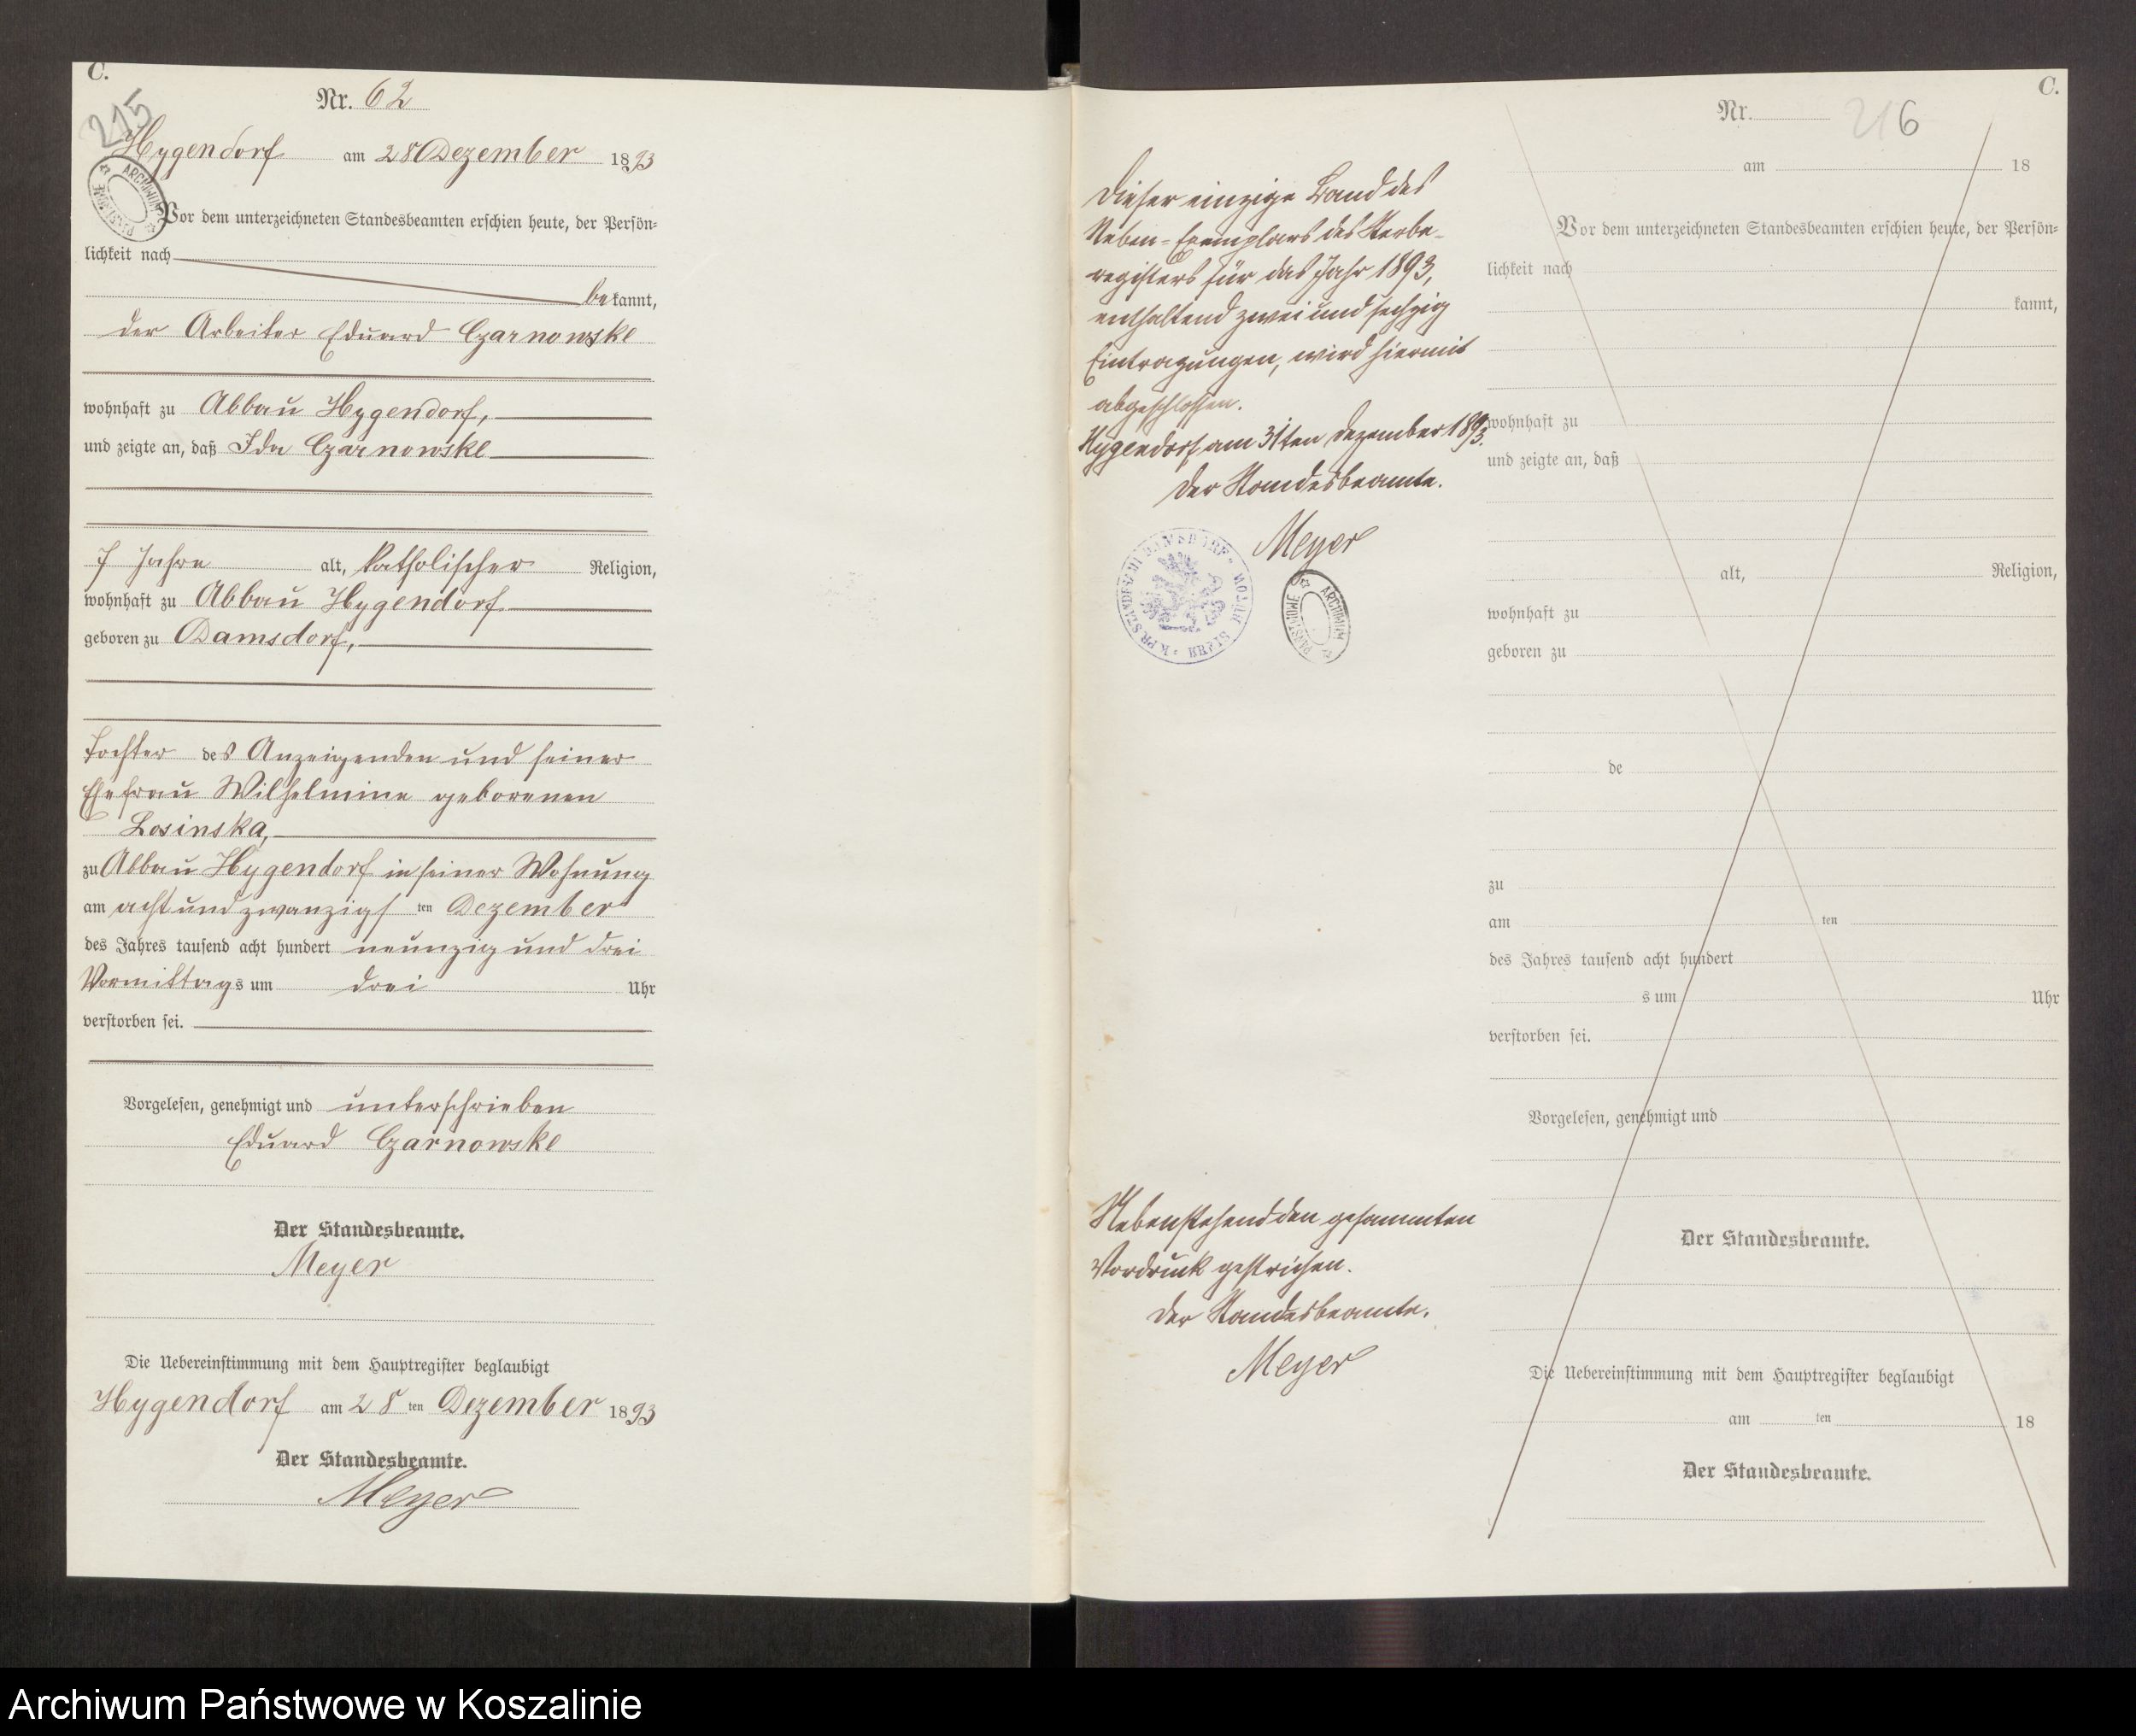 C.
215
Nr. 62
Hygendorf am 28 Dezember 1893
Vor dem unterzeichneten Standesbeamten erschien heute, der Persön-
lichkeit nach
bekannt,
der Arbeiter Eduard Czarnowske
wohnhaft zu Abbau Hygendorf,
und zeigte an, daß Ida Czarnowske
7 Jahre alt, katholischer Religion,
wohnhaft zu Abbau Hygendorf
geboren zu Damsdorf,
Tochter des Anzeigenden und seiner
Ehefrau Wilhelmine geborenen
Losinska,
zu Abbau Hygendorf in seiner Wohnung
am acht und zwanzigsten Dezember
des Jahres tausend acht hundert neunzig und drei
Vormittags um drei Uhr
verstorben sei.
Vorgelesen, genehmigt und unterschrieben
Eduard Czarnowske
Der Standesbeamte.
Meyer
Die Uebereinstimmung mit dem Hauptregister beglaubigt
Hygendorf am 28 ten Dezember 1893
Der Standesbeamte.
Meyer
Dieser einzige Band des
Neben-Exemplars des Sterbe-
registers für das Jahr 1893,
enthaltend zwei und sechzig
Eintragungen, wird hiermit
abgeschlossen.
Hygendorf am 31ten Dezember 1893.
Der Standesbeamte.
Meyer
ARCHIWUM PAŃSTWOWE
Nebenstehend den gesammten
Vordruck gestrichen.
Der Standesbeamte.
Meyer
C.
Nr. 216
am 18
Vor dem unterzeichneten Standesbeamten erschien heute, der Persön-
lichkeit nach
kannt,
wohnhaft zu
und zeigte an, daß
alt, Religion,
wohnhaft zu
geboren zu
de
zu
am ten
des Jahres tausend acht hundert
s um Uhr
verstorben sei.
Vorgelesen, genehmigt und
Der Standesbeamte.
Die Uebereinstimmung mit dem Hauptregister beglaubigt
am ten 18
Der Standesbeamte.
Archiwum Państwowe w Koszalinie